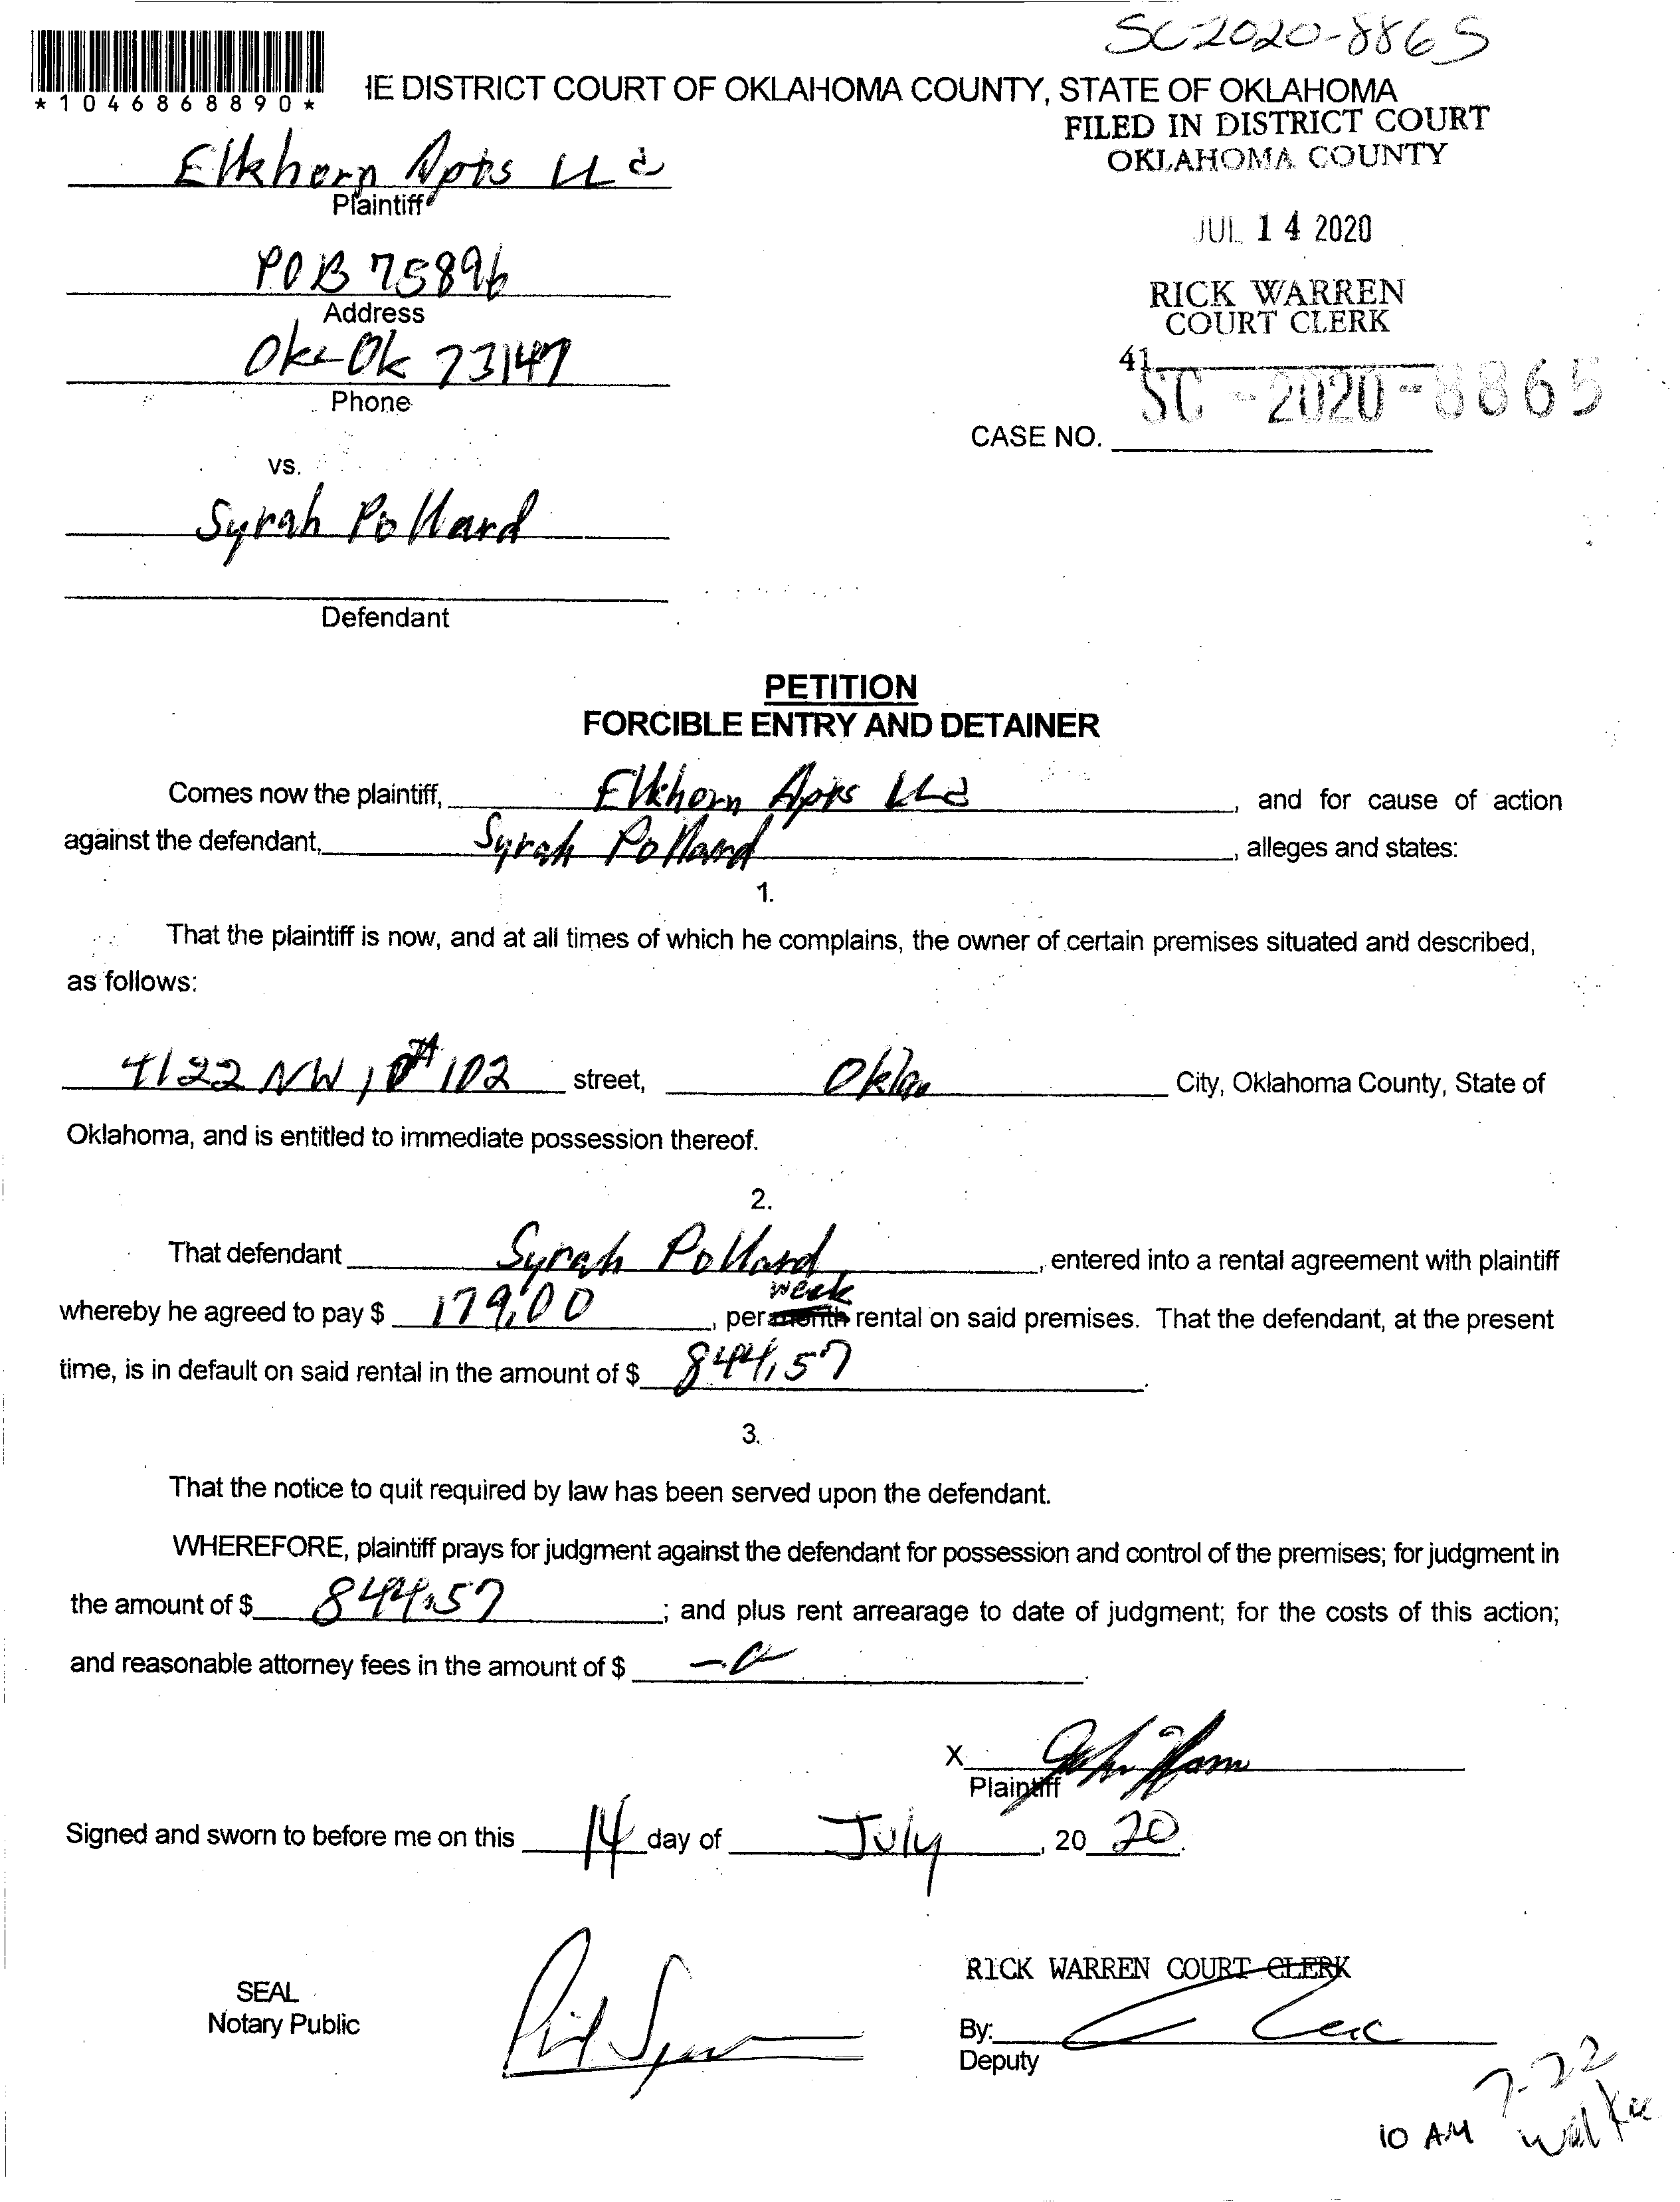 SC-2020-8865
*1046868890*
IE DISTRICT COURT OF OKLAHOMA COUNTY, STATE OF OKLAHOMA
FILED IN DISTRICT COURT
OKLAHOMA COUNTY
Elkhorn Apts
Plaintiff
JUL 14 2020
POB 75896
Address
RICK WARREN
COURT CLERK
Ok 73147
Phone
41
SC - 2020 - 8865
CASE NO.
vs.
Syrah Pollard
Defendant
PETITION
FORCIBLE ENTRY AND DETAINER
Comes now the plaintiff, Elkhorn Apts , and for cause of action
against the defendant, Syrah Pollard , alleges and states:
1.
That the plaintiff is now, and at all times of which he complains, the owner of certain premises situated and described,
as follows:
4122 NW 10 #102 street, City, Oklahoma County, State of
Oklahoma, and is entitled to immediate possession thereof.
2.
That defendant Syrah Pollard , entered into a rental agreement with plaintiff
week
whereby he agreed to pay $ 179.00 , per month rental on said premises. That the defendant, at the present
time, is in default on said rental in the amount of $ 844.57 .
3.
That the notice to quit required by law has been served upon the defendant.
WHEREFORE, plaintiff prays for judgment against the defendant for possession and control of the premises; for judgment in
the amount of $ 844.57 ; and plus rent arrearage to date of judgment; for the costs of this action;
and reasonable attorney fees in the amount of $ .
X
Plaintiff
Signed and sworn to before me on this 14 day of July , 20 20.
RICK WARREN COURT CLERK
SEAL
Notary Public
By:
Deputy
7-22
10 AM